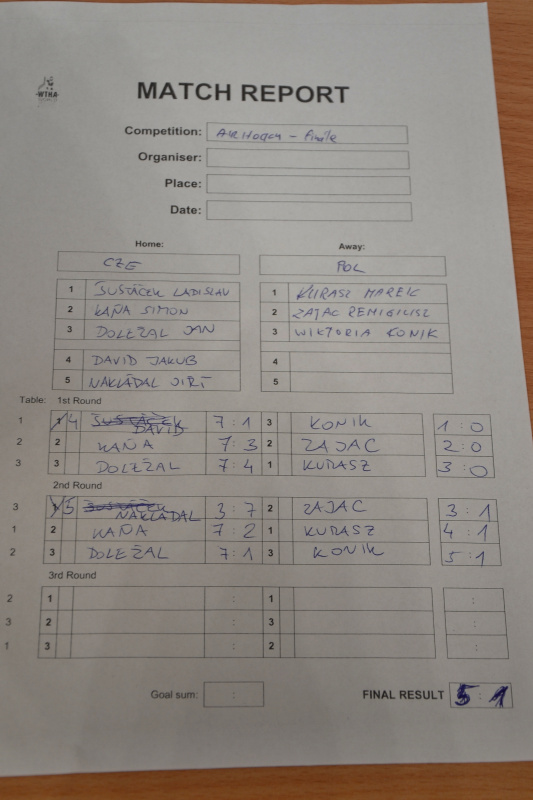 WTHA
MATCH REPORT
Competition: AIRHOCKEY - finále
Organiser:
Place:
Date:
Home: Away:
CZE POL
1 ŠUSTÁČEK LADISLAV 1 KURASZ MAREK
2 KAŇA SIMON 2 ZAJAC REMIGIUSZ
3 DOLEŽAL JAN 3 WIKTORIA KONIK
4 DAVID JAKUB 4
5 NAKLÁDAL JIŘÍ 5
Table: 1st Round
1 1 4 ŠUSTÁČEK DAVID 7:1 3 KONIK 1:0
2 2 KAŇA 7:3 2 ZAJAC 2:0
3 3 DOLEŽAL 7:4 1 KURASZ 3:0
2nd Round
3 1 5 ŠUSTÁČEK NAKLÁDAL 3:7 2 ZAJAC 3:1
1 2 KAŇA 7:2 1 KURASZ 4:1
2 3 DOLEŽAL 7:1 3 KONIK 5:1
3rd Round
2 1 : 1 :
3 2 : 3 :
1 3 : 2 :
Goal sum: : FINAL RESULT 5:1